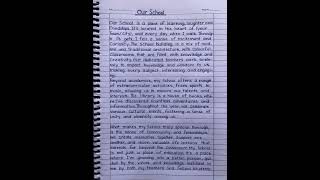 Our School.
Our School is a place of learning, laughter and
friendships. It's located in the heart of [your
town/city], and every day, when I walk through
its gate, I feel a sense of excitement and
curiosity. The School building is a mix of mod-
ern and traditional architecture, with colourful
classrooms that are filled with knowledge and
creativity. Our dedicated teachers work tirele-
ssly to impart knowledge and wisdom to us,
making every subject interesting and engag-
ing.
Beyond academics, my school offers a range
of extracurricular activities, from sports to
music, allowing us to explore our talents and
interests. The library is a house of books, where
we've discovered countless adventures and
information. Throughout the year, we celebrate
various cultural events, fostering a sense of
unity and diversity among us.
What makes my School truly special though,
is the sense of community and friendships.
We create memories together, support one
another, and learn valuable life lessons that
extend far beyond the classroom. My School
is not just a place of education; it's a place
where I'm growing into a better person, gui-
ded by the values and knowledge instilled in
me by both my teachers and fellow students.